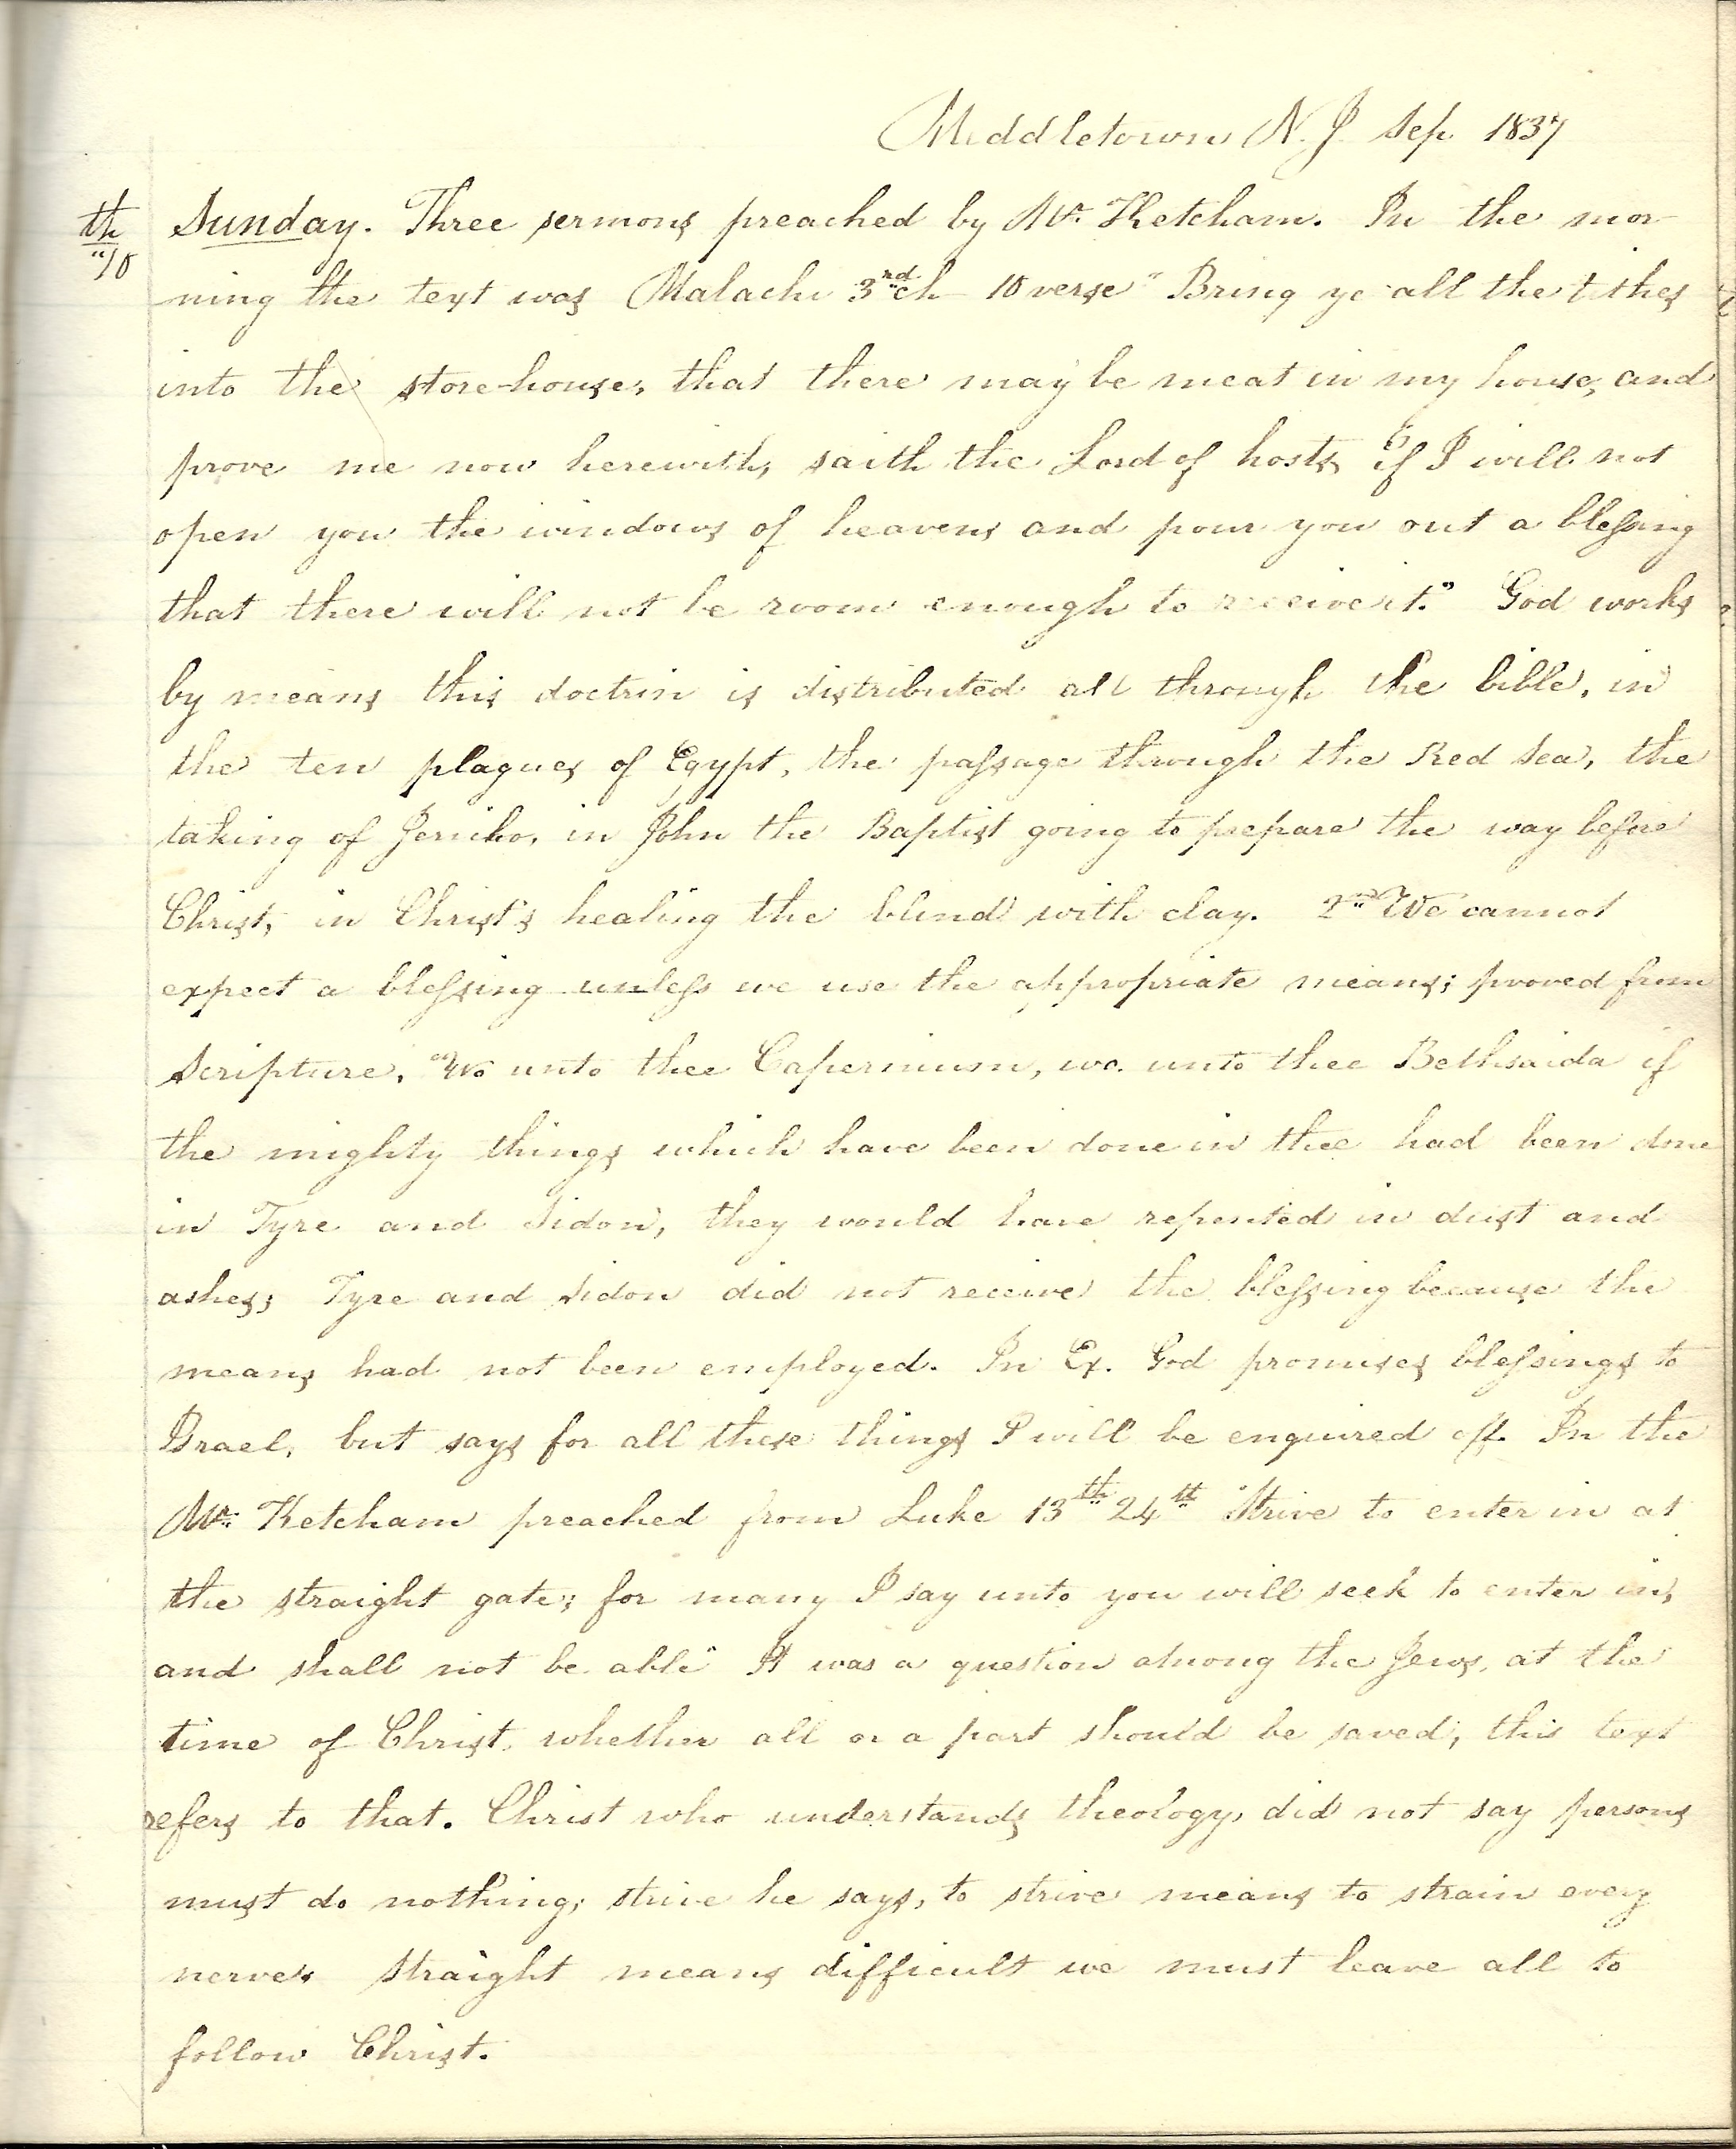 Middletown N.J. Sep. 1837
th
"10
Sunday. Three sermons preached by Mr. Ketcham. In the mor-
ning the text was Malachi 3rd ch 10 verse "Bring ye all the tithes
into the store-house, that there may be meat in my house, and
prove me now herewith, saith the Lord of hosts, if I will not
open you the windows of heavens and pour you out a blessing
that there will not be room enough to receive it." God works
by means this doctrin is distributed all through the bible, in
the ten plagues of Egypt, the passage through the Red Sea, the
taking of Jericho, in John the Baptist going to prepare the way before
Christ, in Christ's healing the blind with clay. 2nd We cannot
expect a blessing unless we use the appropriate means; proved from
Scripture. "Wo unto thee Capernium, wo unto thee Bethsaida if
the mighty things which have been done in thee had been done
in Tyre and Sidon, they would have repented in dust and
ashes; Tyre and Sidon did not receive the blessing because the
means had not been employed. In Ex. God promises blessings to
Israel, but says for all these things I will be enquired of. In the
Mr. Ketcham preached from Luke 13th 24th "Strive to enter in at
the straight gate; for many I say unto you will seek to enter in,
and shall not be able" It was a question among the Jews, at the
time of Christ, whether all or a part should be saved; this text
refers to that. Christ who understands theology, did not say persons
must do nothing; strive he says, to strive means to strain every
nerve. Straight means difficult we must leave all to
follow Christ.